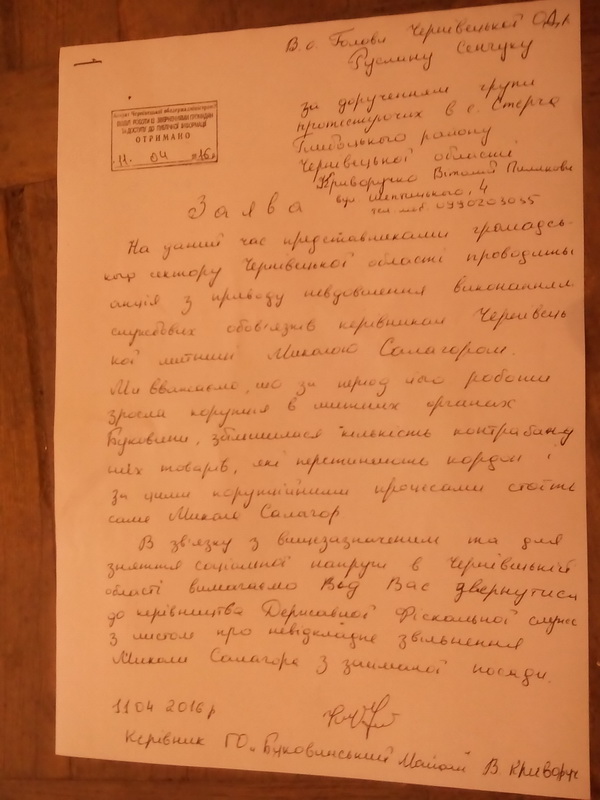 В.о. Голови Чернівецької ОДА
Руслану Сенчуку
за дорученням групи
протестуючих в с. Стерче
Глибоцького району
Чернівецької області
Криворучко Віталій
вул. Шептицького, 4
тел. моб. 0990203055
ВІДДІЛ РОБОТИ ІЗ ЗВЕРНЕННЯМИ ГРОМАДЯН
ТА ДОСТУПУ ДО ПУБЛІЧНОЇ ІНФОРМАЦІЇ
ОТРИМАНО
11. 04 2016
Заява
На даний час представниками громадсь-
кого сектору Чернівецької області проводиться
акція з приводу невдоволення виконанням
службових обов'язків керівником Чернівець
кої митниці Миколою Салагором.
Ми вважаємо, що за період його роботи
зросла корупція в митних органах
Буковини, збільшилася кількість контрабанд
них товарів, які перетинають кордон і
за цими корупційними процесами стоїть
саме Микола Салагор
В зв'язку з вищезазначеним та для
зняття соціальної напруги в Чернівецькій
області вимагаємо Від Вас звернутися
до керівництва Державної Фіскальної служби
з листом про невідкладне звільнення
Миколи Салагора з займаної посади.
11 04 2016 р
Керівник ГО „Буковинський Майдан В Криворуч